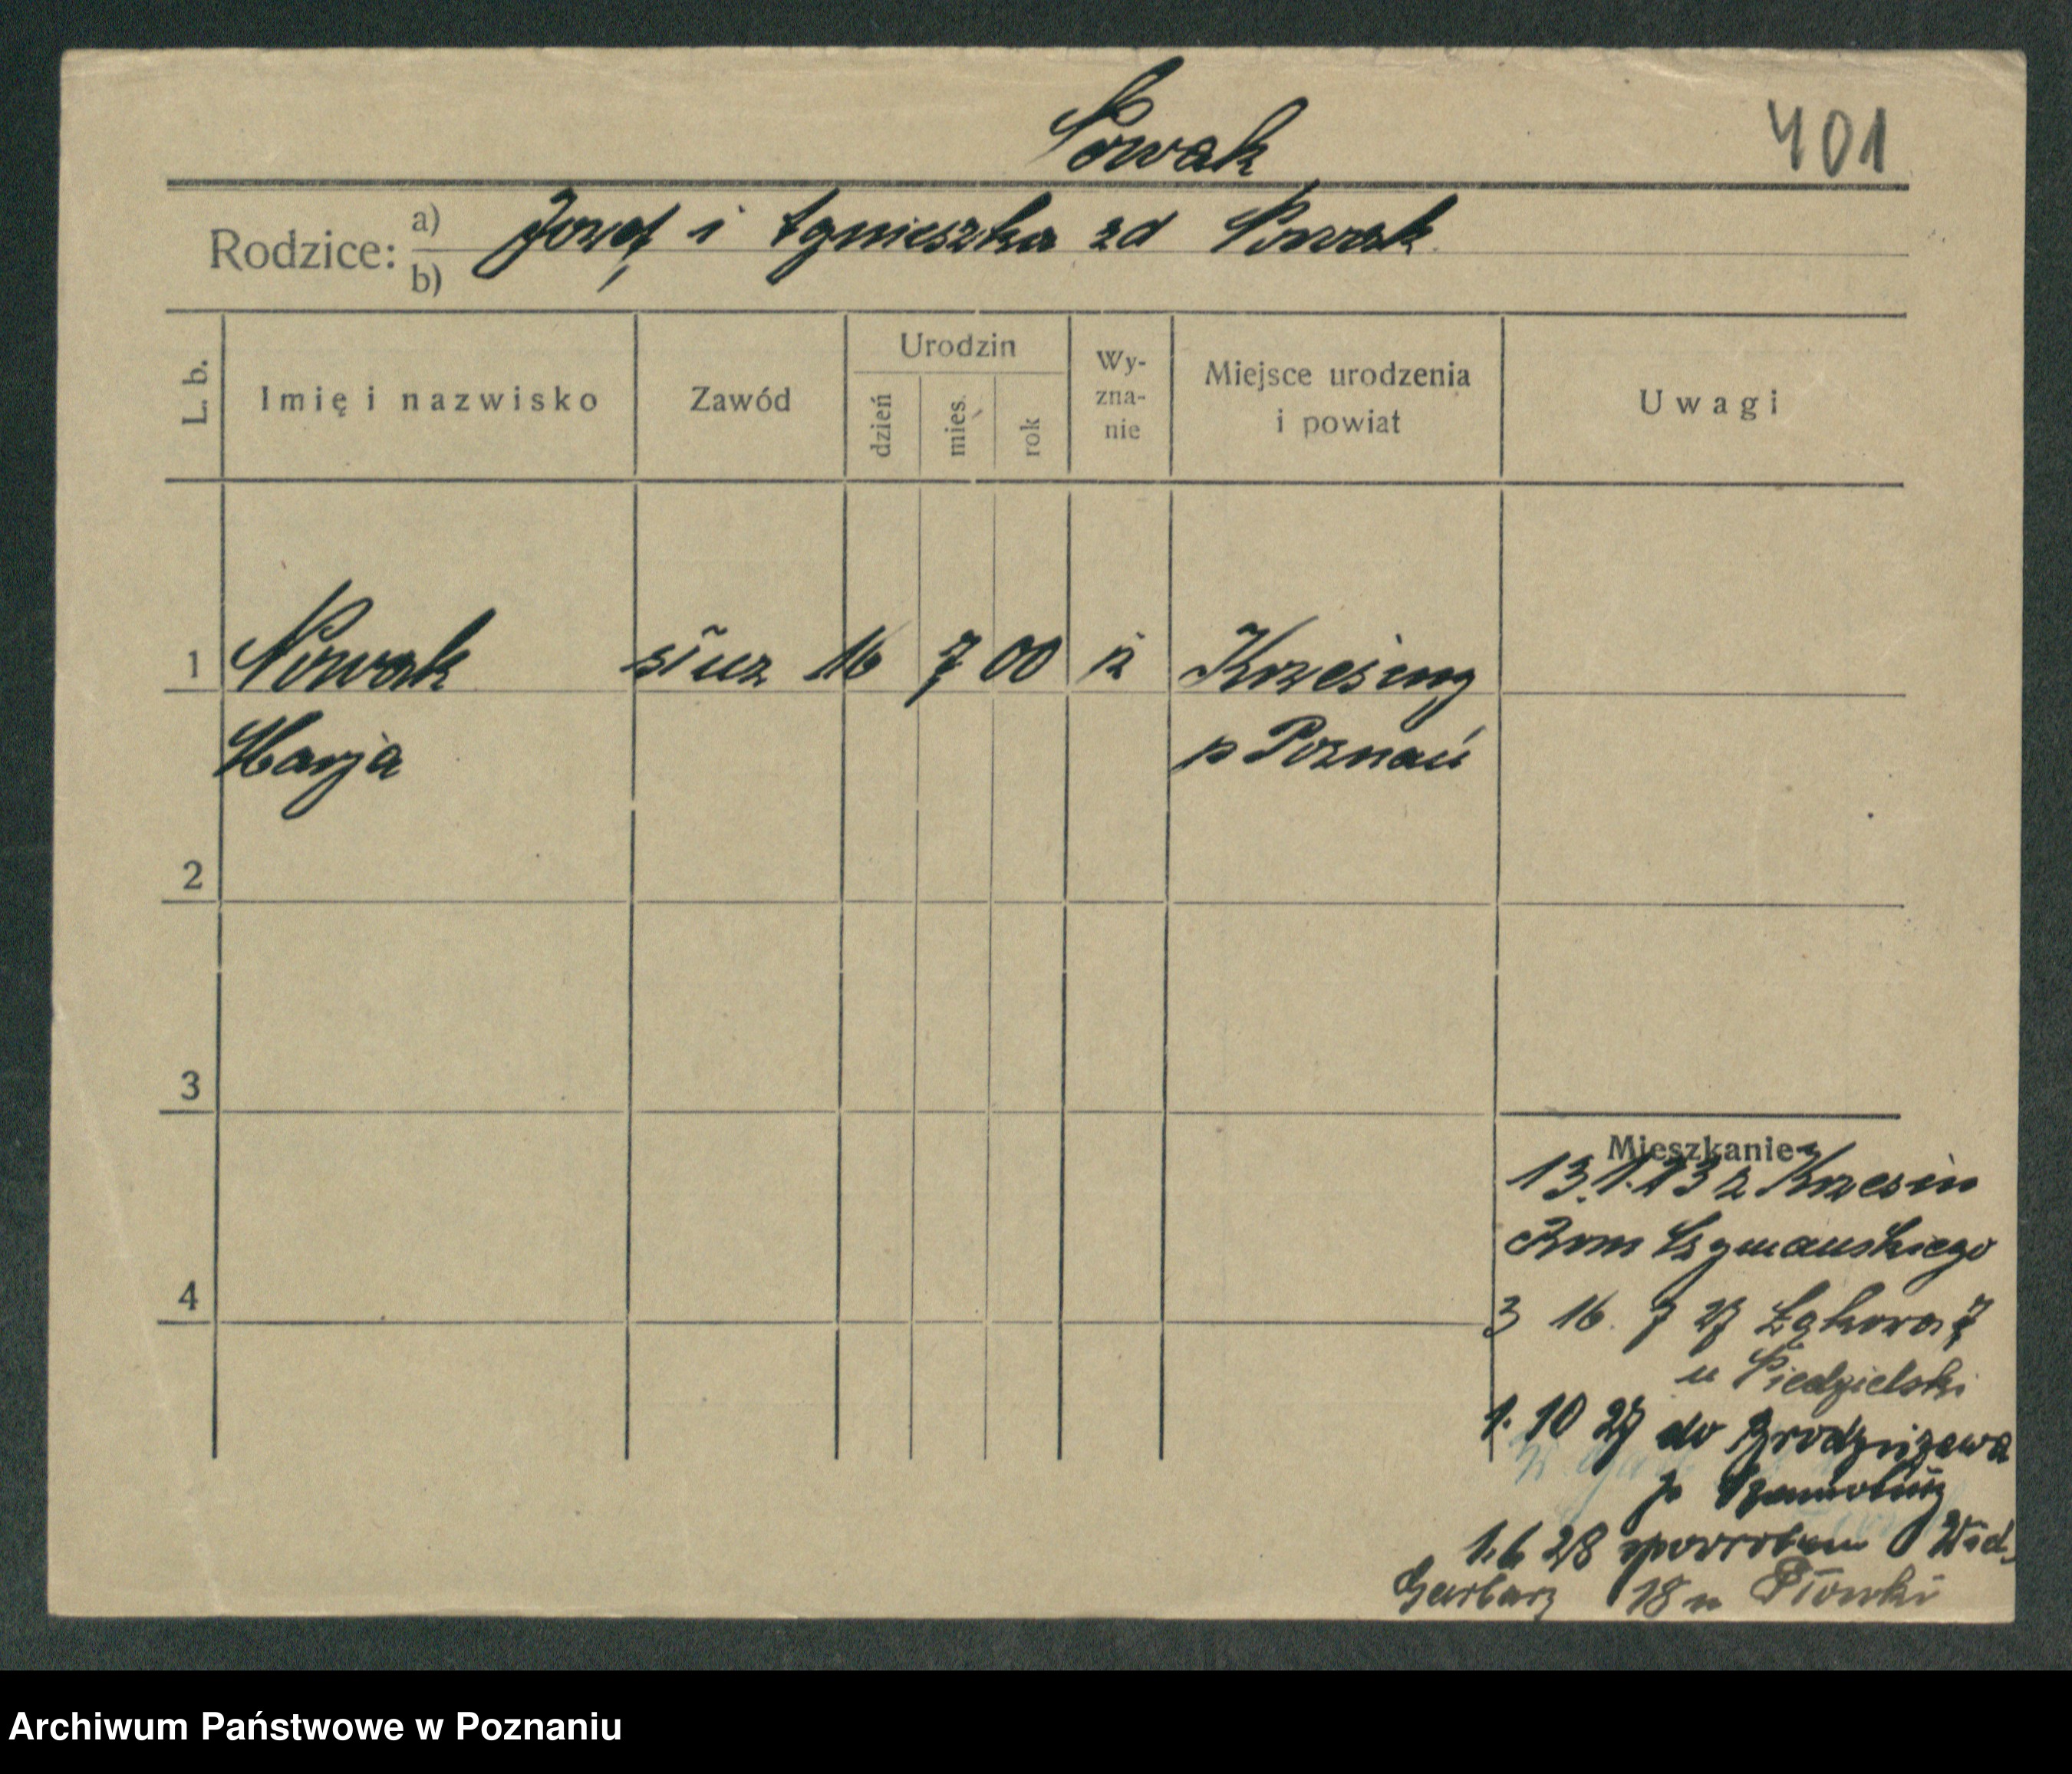 Nowak
401
Rodzice: a) Józef i Agnieszka zd Nowak
b)
L. b. Imię i nazwisko Zawód Urodzin dzień mies. rok Wy-zna-nie Miejsce urodzenia i powiat Uwagi
1 Nowak służ 16 7 00 k Krzesiny
Marja p Poznań
2
3
4
Mieszkanie
13.1.23 z Krzesin
Rom Szymańskiego
3 16. 7 27 Łąkowa 7
u Niedzielski
1. 10 27 do Brodziszewa
p Szamotuły
1.6 28 spowrotem Wiel.
Garbary 18 u
Archiwum Państwowe w Poznaniu